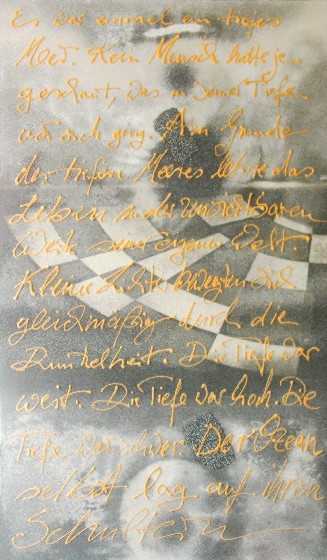 Es war einmal ein tiefes
Meer. Kein Mensch hatte je
geschaut, was in seiner Tiefe
vor sich ging. Am Grunde
des tiefen Meeres lebte das
Leben in der unsichtbaren
Weite seiner eigenen Welt.
Kleine Lichter bewegten sich
gleichmäßig durch die
Dunkelheit. Die Tiefe war
weit. Die Tiefe war hoch. Die
Tiefe war schwer. Der Ozean
selbst lag auf ihren
Schultern